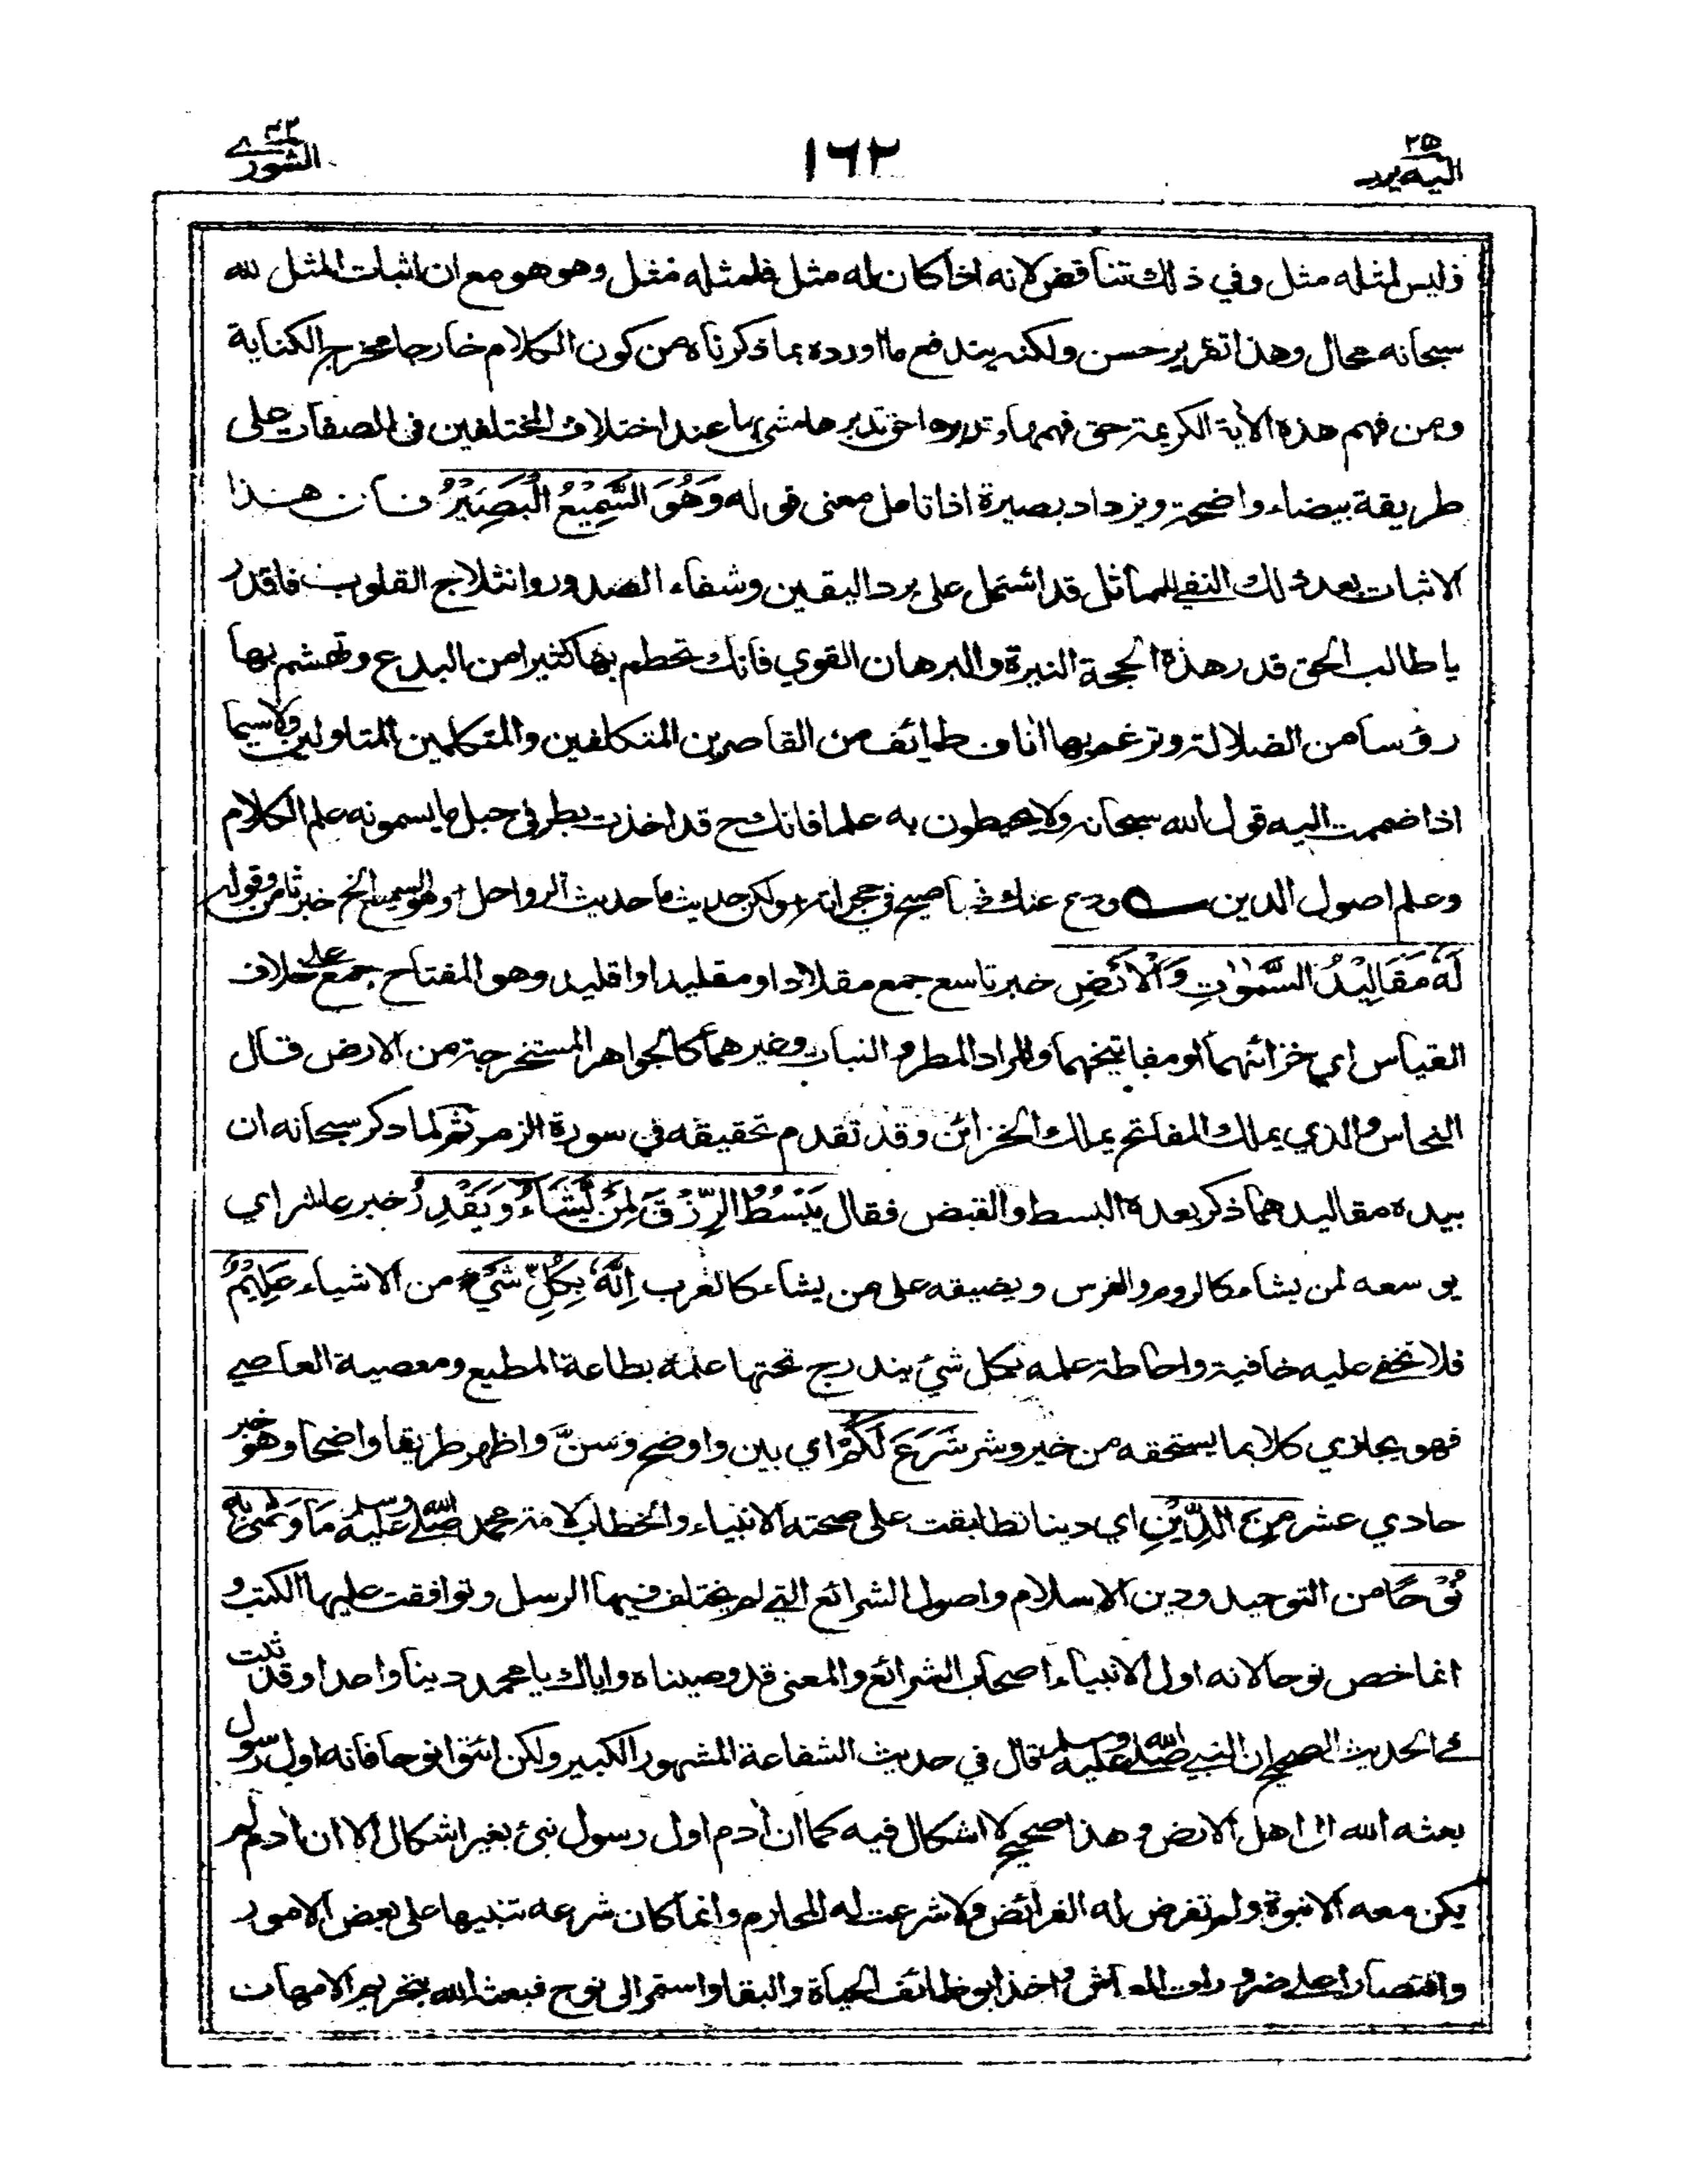 ٢٥
اليه يرد
١٦٢
٤٢
الشورى
فليس لمثله مثل وفي ذلك تناقض لانه اذا كان له مثل فلمثله مثل وهو هو مع ان اثبات المثل لله
سبحانه محال وهذا تقرير حسن ولكنه يندفع ما اورده بما ذكرناه من كون الكلام خارجا مخرج الكناية
ومن فهم هذه الآية الكريمة حق فهمها وتدبرها حق تدبرها مشى بها عند اختلاف المختلفين في الصفات على
طريقة بيضاء واضحة ويزداد بصيرة اذا تامل معنى قوله وَهُوَ السَّمِيْعُ الْبَصِيْرُ فان هذا
الاثبات بعد ذلك النفي للمماثل قد اشتمل على برد اليقين وشفاء الصدور وانثلاج القلوب فاقدر
يا طالب الحق قدر هذه الحجة النيرة والبرهان القوي فانك تحطم بها كثيرا من البدع وتهشم بها
رؤسا من الضلالة وترغم بها اناف طوائف من القاصرين المتكلفين والمتكلمين المتاولين ولاسيما
اذا ضممت اليه قول الله سبحانه ولا يحيطون به علما فانك ح قد اخذت بطرفي حبل ما يسمونه علم الكلام
وعلم اصول الدين ودع عنك نهبا صيح في حجراته ولكن حديث ما حديث الرواحل وهو السميع الخ خبر ثامن وقوله
لَهٗ مَقَالِيْدُ السَّمٰوٰتِ وَالْاَرْضِ خبر تاسع جمع مقلاد او مقليد او اقليد وهو المفتاح جمع على خلاف
القياس اي خزائنهما او مفاتيحهما والمراد المطر والنبات وغيرهما كالجواهر المستخرجة من الارض قال
النحاس والذي يملك المفاتح يملك الخزائن وقد تقدم تحقيقه في سورة الزمر ثم لما ذكر سبحانه ان
بيده مقاليدهما ذكر بعده البسط والقبض فقال يَبْسُطُ الرِّزْقَ لِمَنْ يَّشَاءُ وَيَقْدِرُ خبر عاشر اي
يوسعه لمن يشاء كالروم والفرس ويضيقه على من يشاء كالعرب اِنَّهٗ بِكُلِّ شَيْءٍ من الاشياء عَلِيْمٌ
فلا تخفى عليه خافية واحاطة علمه بكل شيئ يندرج تحتها علمه بطاعة المطيع ومعصية العاصي
فهو يجازي كلا بما يستحقه من خير وشر شَرَعَ لَكُمْ اي بين واوضح وسنَّ واظهر طريقا واضحا وهو خبر
حادي عشر مِنَ الدِّيْنِ اي دينا تطابقت على صحته الانبياء والخطاب لامة محمد صلى الله عليه وسلم مَا وَصّٰى بِهٖ
نُوْحًا من التوحيد ودين الاسلام واصول الشرائع التي لم يختلف فيها الرسل وتوافقت عليها الكتب و
انما خص نوحا لانه اول الانبياء اصحاب الشرائع والمعنى قد وصيناه واياك يا محمد دينا واحدا وقد ثبت
في الحديث الصحيح ان النبي صلى الله عليه وسلم قال في حديث الشفاعة المشهور الكبير ولكن ائتوا نوحا فانه اول رسول
بعثه الله الى اهل الارض وهذا صحيح لا اشكال فيه كما ان آدم اول رسول نبئ بغير اشكال الا ان آدم لم
يكن معه الا نبوة ولم تفرض له الفرائض ولا شرعت له المحارم وانما كان شرعه تنبيها على بعض الامور
واقتصارا على ضرورات المعاش واخذا بوظائف الحياة والبقا واستمر الى نوح فبعث الله بتحريم الامهات